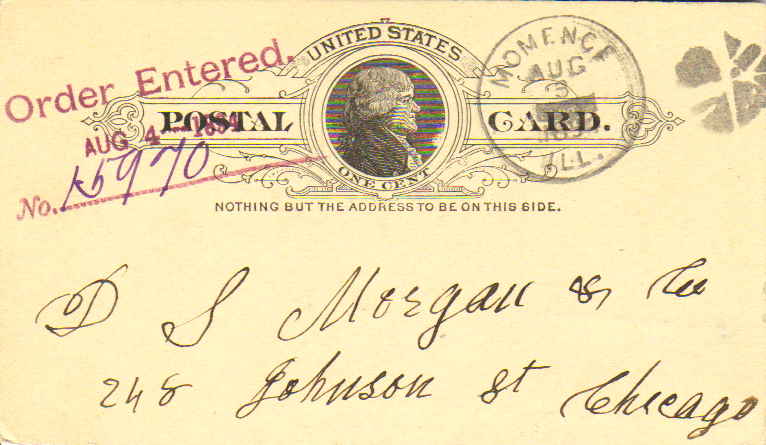 UNITED STATES
POSTAL CARD.
ONE CENT
NOTHING BUT THE ADDRESS TO BE ON THIS SIDE.
Order Entered.
AUG 4 - 1894
No. 15970
MOMENCE
AUG
ILL.
D S Morgan & Co
248 Johnson St Chicago